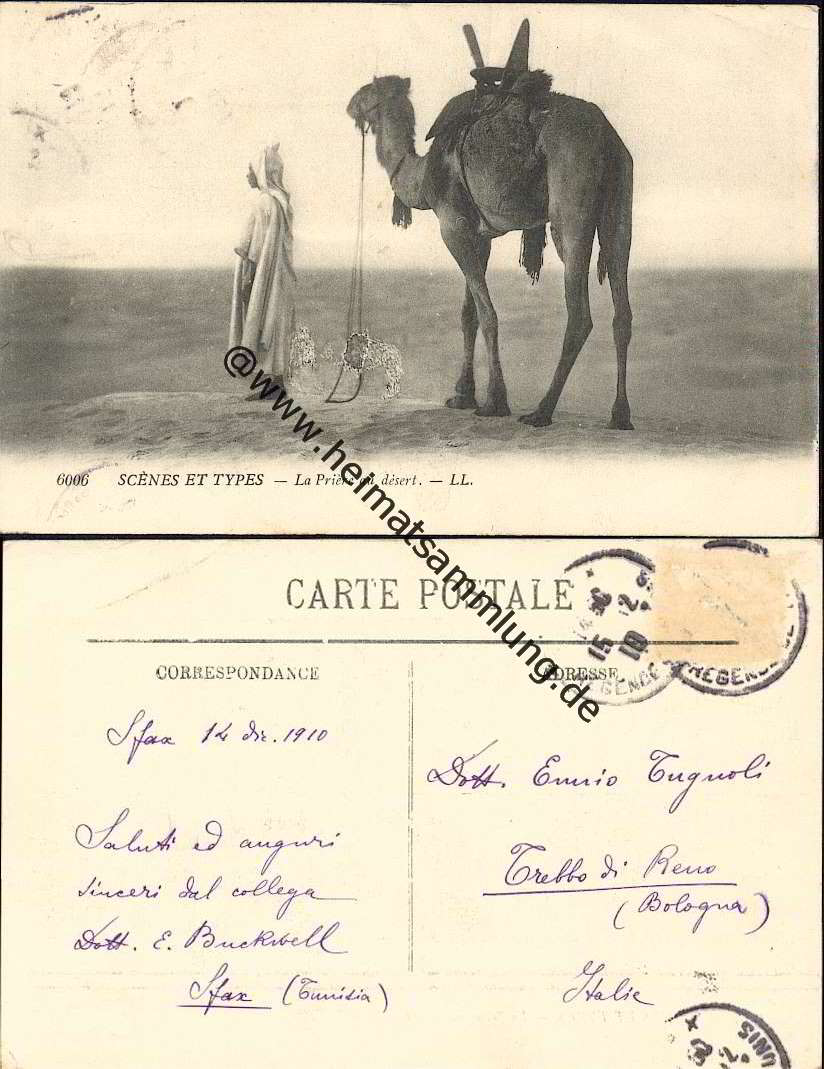 6006 SCÈNES ET TYPES — La Prière au désert. — LL.
@www.heimatsammlung.de
CARTE POSTALE
CORRESPONDANCE
ADRESSE
15 12
10
REGENCE
REGENCE DE
Sfax 14 dic. 1910
Saluti ed auguri
sinceri dal collega
Dott. E. Buckwell
Sfax (Tunisia)
Dott. Ennio Tugnoli
Trebbo di Reno
(Bologna)
Italie
UNIS